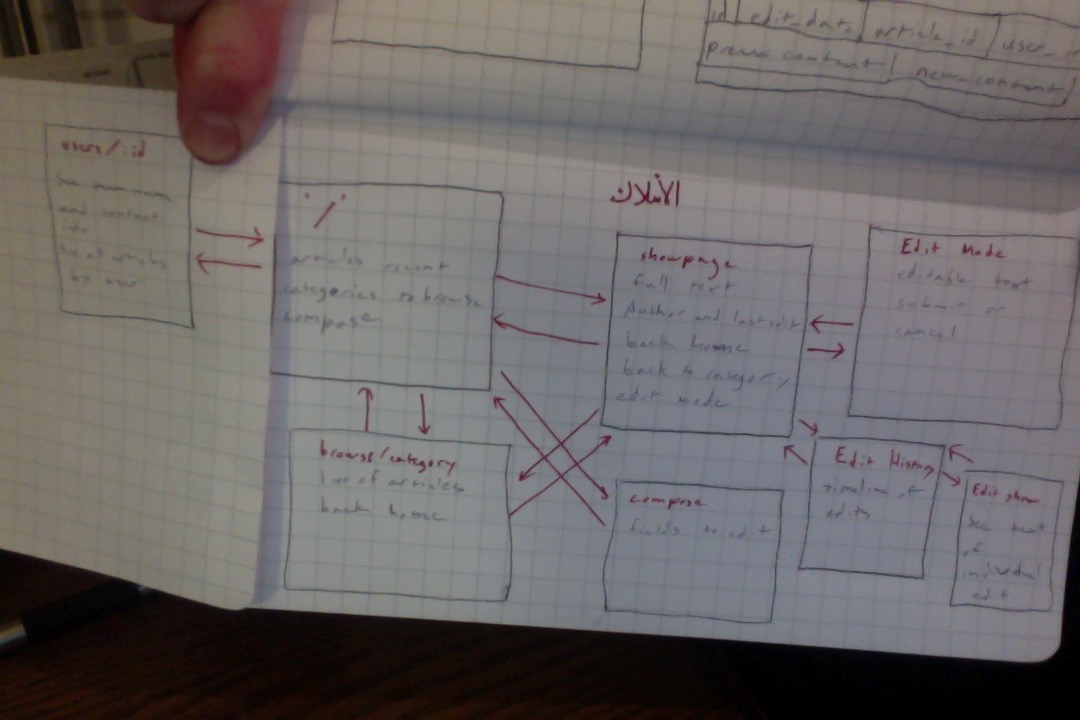 id | edit_date | article_id | user_i
new_content
users/:id
and contact
info
See all articles
by user
"/"
articles recent
categories to browse
compose
showpage
full text
Author and last edit
back home
back to category
edit mode
Edit Mode
editable text
submit or
cancel
browse/category
list of articles
back home
compose
fields to edit
Edit History
timeline of
edits
Edit show
See text
of
individual
edit